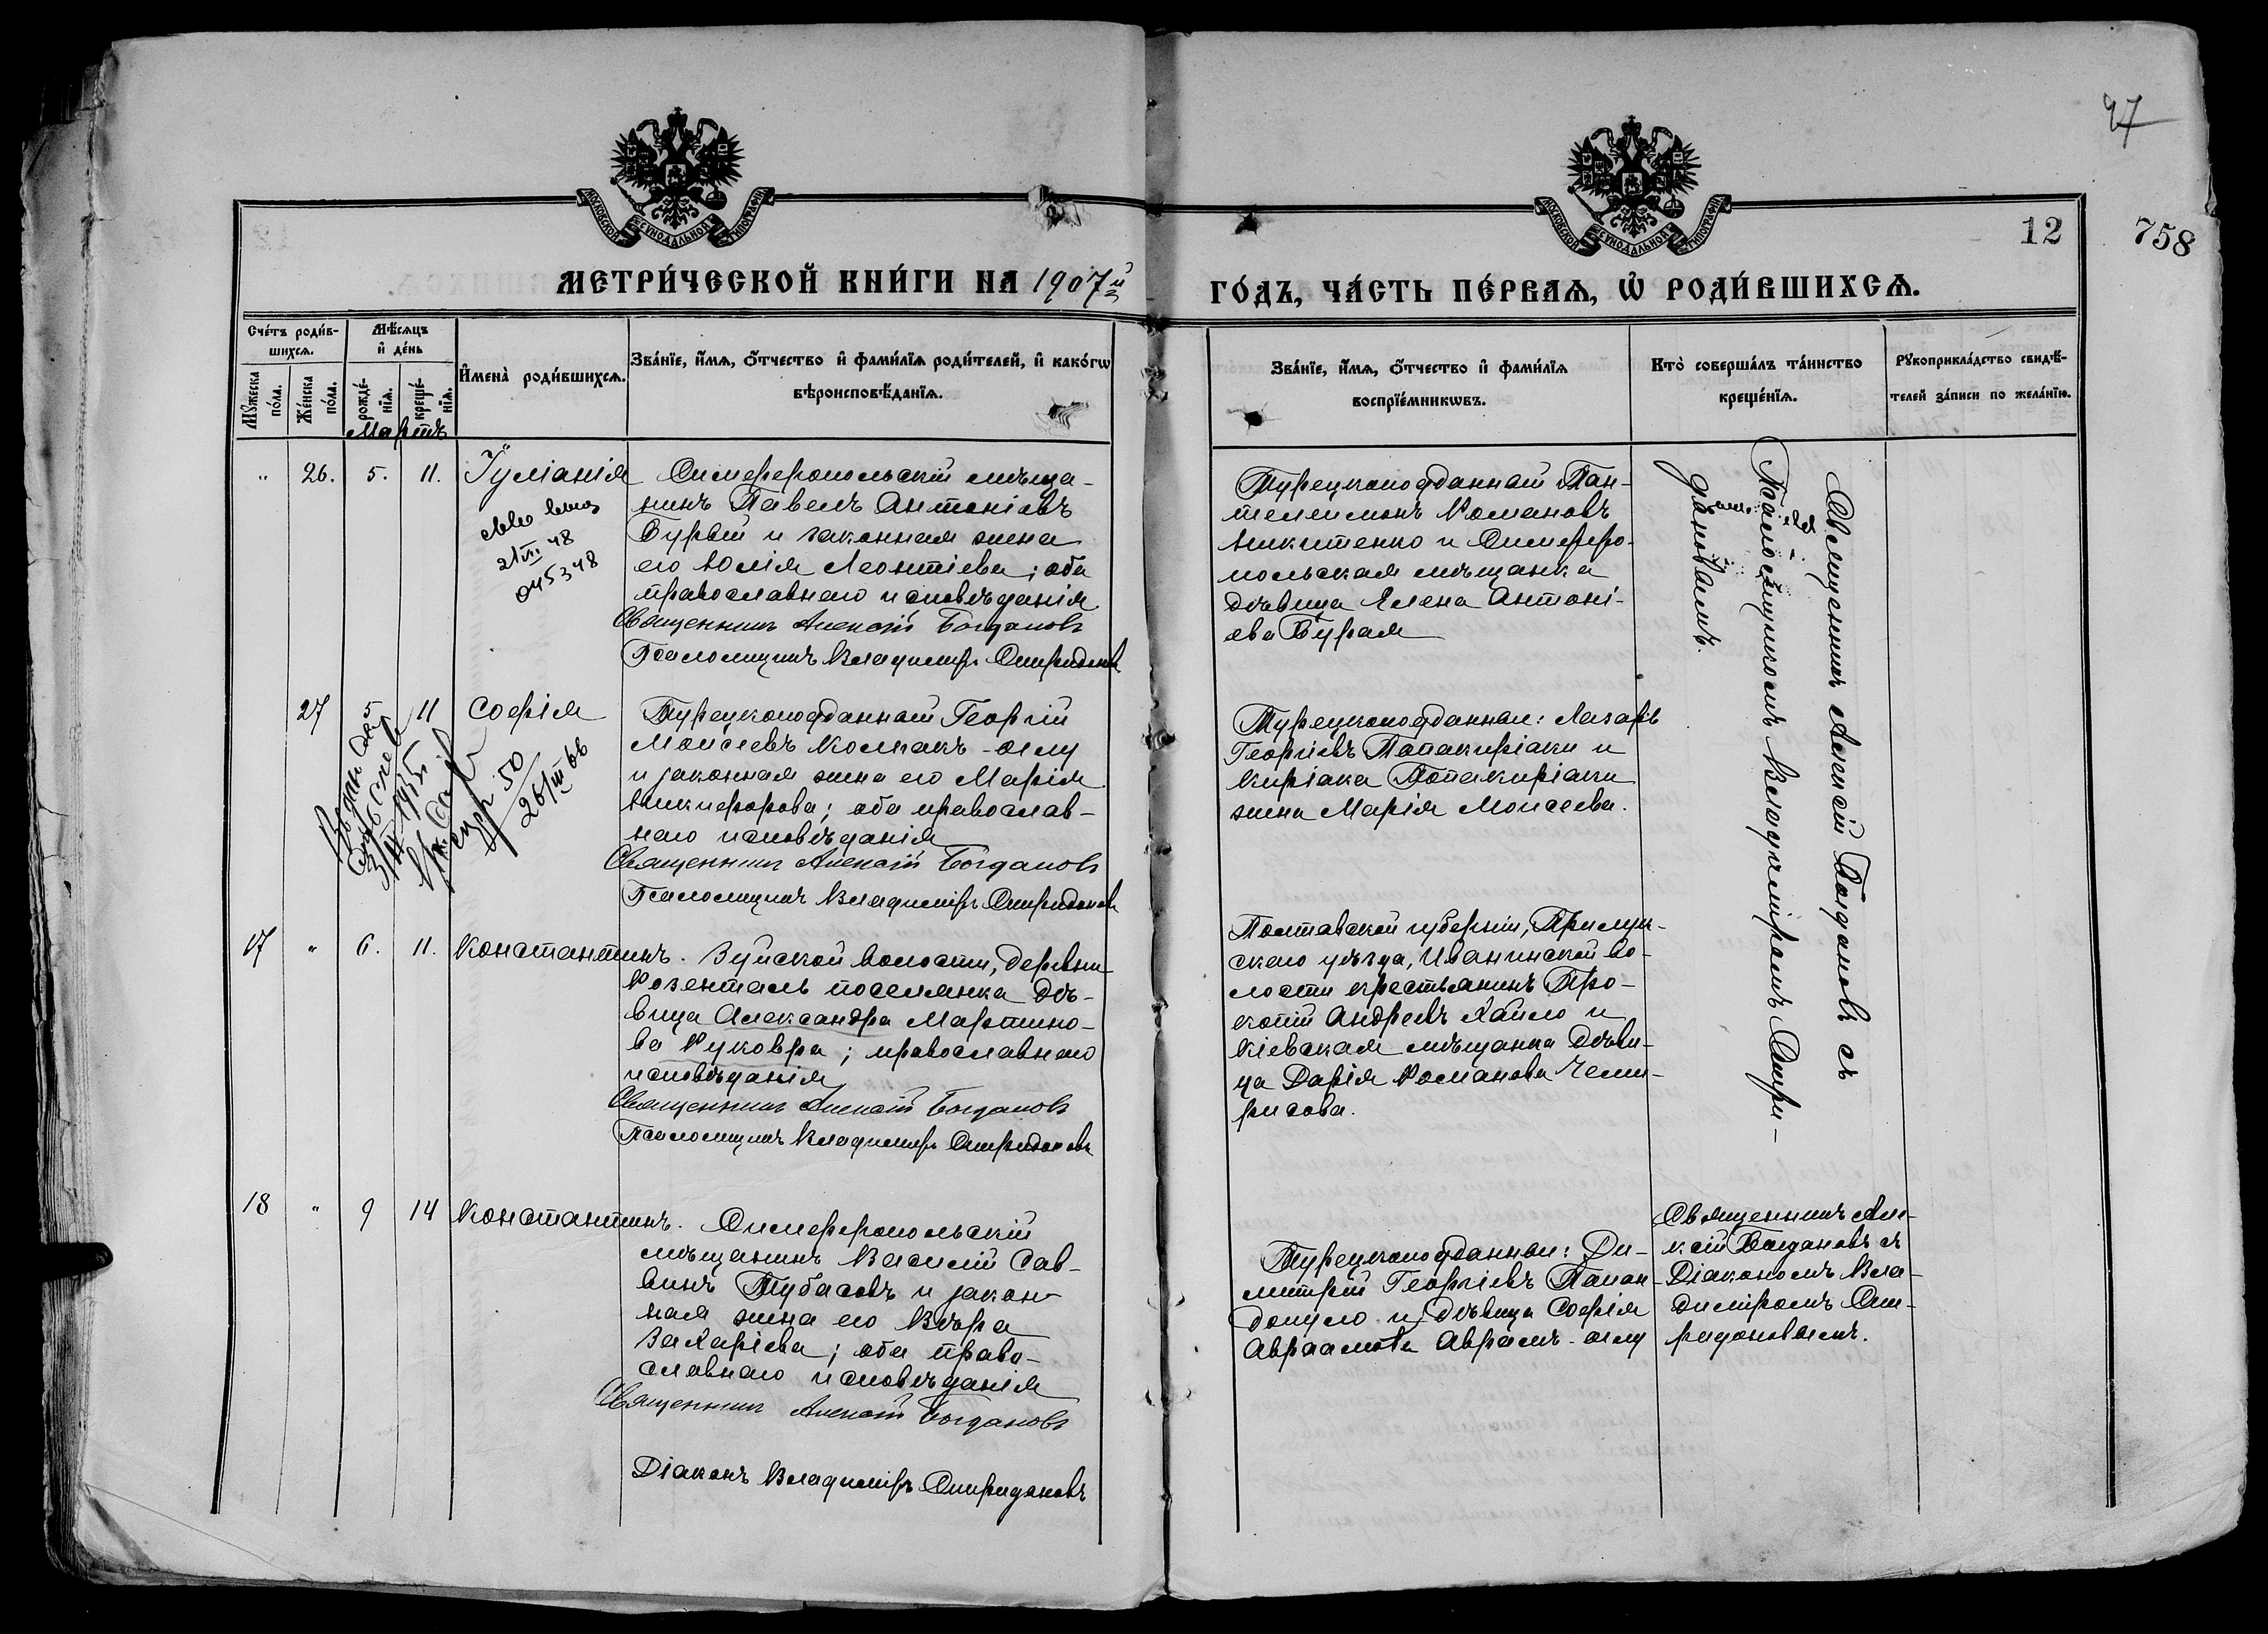 97
12
758
МОСКОВСКОЙ СѴНОДАЛЬНОЙ ТИПОГРАФІИ
МОСКОВСКОЙ СѴНОДАЛЬНОЙ ТИПОГРАФІИ
МЕТРИ́ЧЕСКОЙ КНИ́ГИ НА 1907й
ГО́ДЪ, ЧА́СТЬ ПЕ́РВАѦ, Ѡ҆ РОДИ́ВШИХСѦ.
Сче́тъ роди́в-
шихсѧ.
Мꙋ́жеска по́ла.
Же́нска по́ла.
Мѣ́сѧцъ и҆ де́нь
рожде́-нїѧ.
креще́-нїѧ.
И҆мена̀ роди́вшихсѧ.
Зва́нїе, и҆́мѧ, ѻ҆́тчество и҆ фами́лїѧ роди́телей, и҆ како́гѡ
вѣроисповѣ́данїѧ.
Зва́нїе, и҆́мѧ, ѻ҆́тчество и҆ фами́лїѧ
воспрїе́мникѡвъ.
Кто̀ соверша́лъ та́инство
креще́нїѧ.
Рꙋкоприкла́дство свидѣ́-
телей за́писи по жела́нїю.
Мартъ
" 26. 5. 11. Іуліанія
21 VII 48
045348
Симферопольскій мѣща-
нинъ Павелъ Антоніевъ
Бурый и законная жена
его Юлія Леонтіева; оба
православнаго исповѣданія
Священникъ Алексій Богдановъ
Псаломщикъ Владиміръ Спиридоновъ
Турецкоподданный Пан-
телеимонъ Романовъ
Никитенко и Симферо-
польская мѣщанка
дѣвица Елена Антоні-
ева Бурая
Священникъ Алексій Богдановъ съ
Псаломщикомъ Владиміромъ Спири-
доновымъ.
27 5 11 Софія
3/III 1955
50
26/III 66
Турецкоподданный Георгій
Моисеевъ Колпакъ-оглу
и законная жена его Марія
Никифорова; оба православ-
наго исповѣданія
Священникъ Алексій Богдановъ
Псаломщикъ Владиміръ Спиридоновъ
Турецкоподданные: Лазарь
Георгіевъ Папакиріаки и
Киріака Папакиріаки
жена Марія Моисеева.
17 " 6. 11. Константинъ.
Зуйской волости, деревни
Розенталь поселянка дѣ-
вица Александра Мартино-
ва Руковра; православнаго
исповѣданія
Священникъ Алексій Богдановъ
Псаломщикъ Владиміръ Спиридоновъ
Полтавской губерніи, Прилук-
скаго уѣзда, Иваницской во-
лости крестьянинъ Про-
копій Андреевъ Хайло и
Кіевская мѣщанка дѣви-
ца Дарія Романова Чеми-
рисова.
18 " 9 14 Константинъ.
Симферопольскій
мѣщанинъ Василій Сав-
винъ Тубасовъ и закон-
ная жена его Вѣра
Захаріева; оба право-
славнаго исповѣданія
Священникъ Алексій Богдановъ
Діаконъ Владиміръ Спиридоновъ
Турецкоподданные: Ди-
митрій Георгіевъ Папан-
допуло и дѣвица Софія
Авраамова Аврамъ-оглу
Священникъ Але-
ксій Богдановъ съ
Діакономъ Вла-
диміромъ Спи-
ридоновымъ.